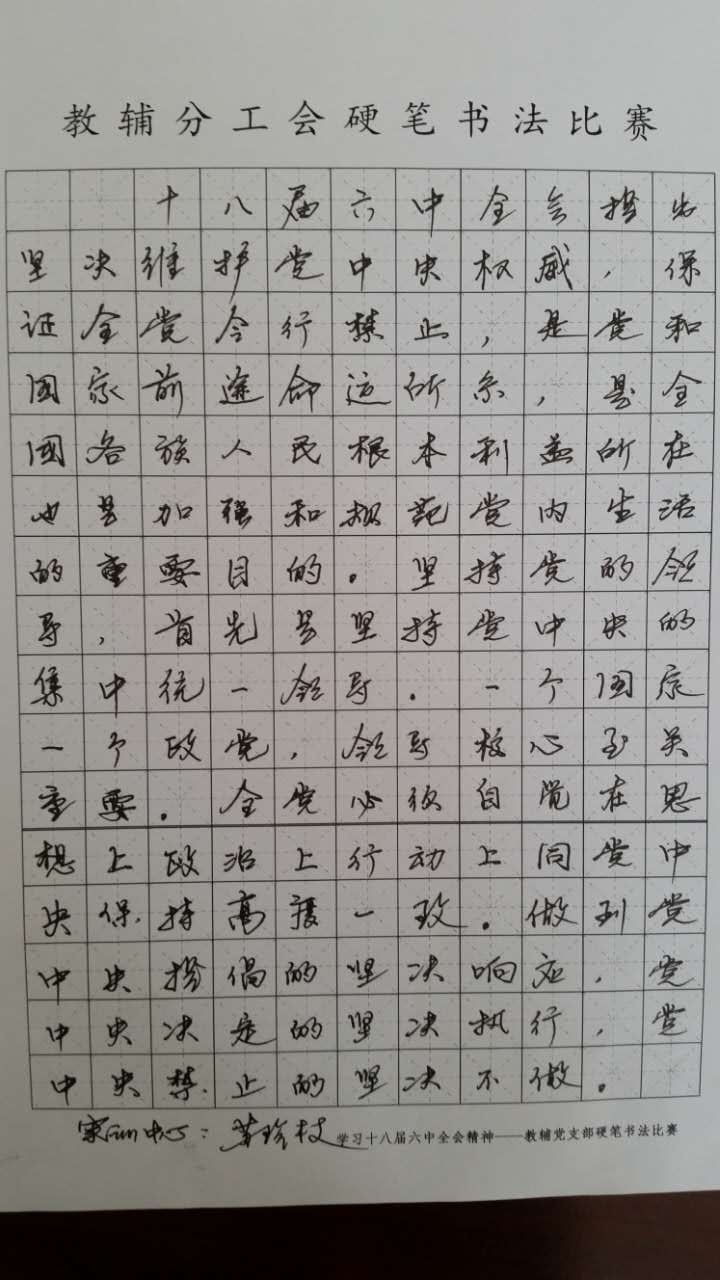 教辅分工会硬笔书法比赛
十八届六中全会指出
坚决维护党中央权威，保
证全党令行禁止，是党和
国家前途命运所系，是全
国各族人民根本利益所在
也是加强和规范党内生活
的重要目的。坚持党的领
导，首先是坚持党中央的
集中统一领导。一个国家
一个政党，领导核心至关
重要。全党必须自觉在思
想上政治上行动上同党中
央保持高度一致。做到党
中央提倡的坚决响应，党
中央决定的坚决执行，党
中央禁止的坚决不做。
中心：
学习十八届六中全会精神——教辅党支部硬笔书法比赛